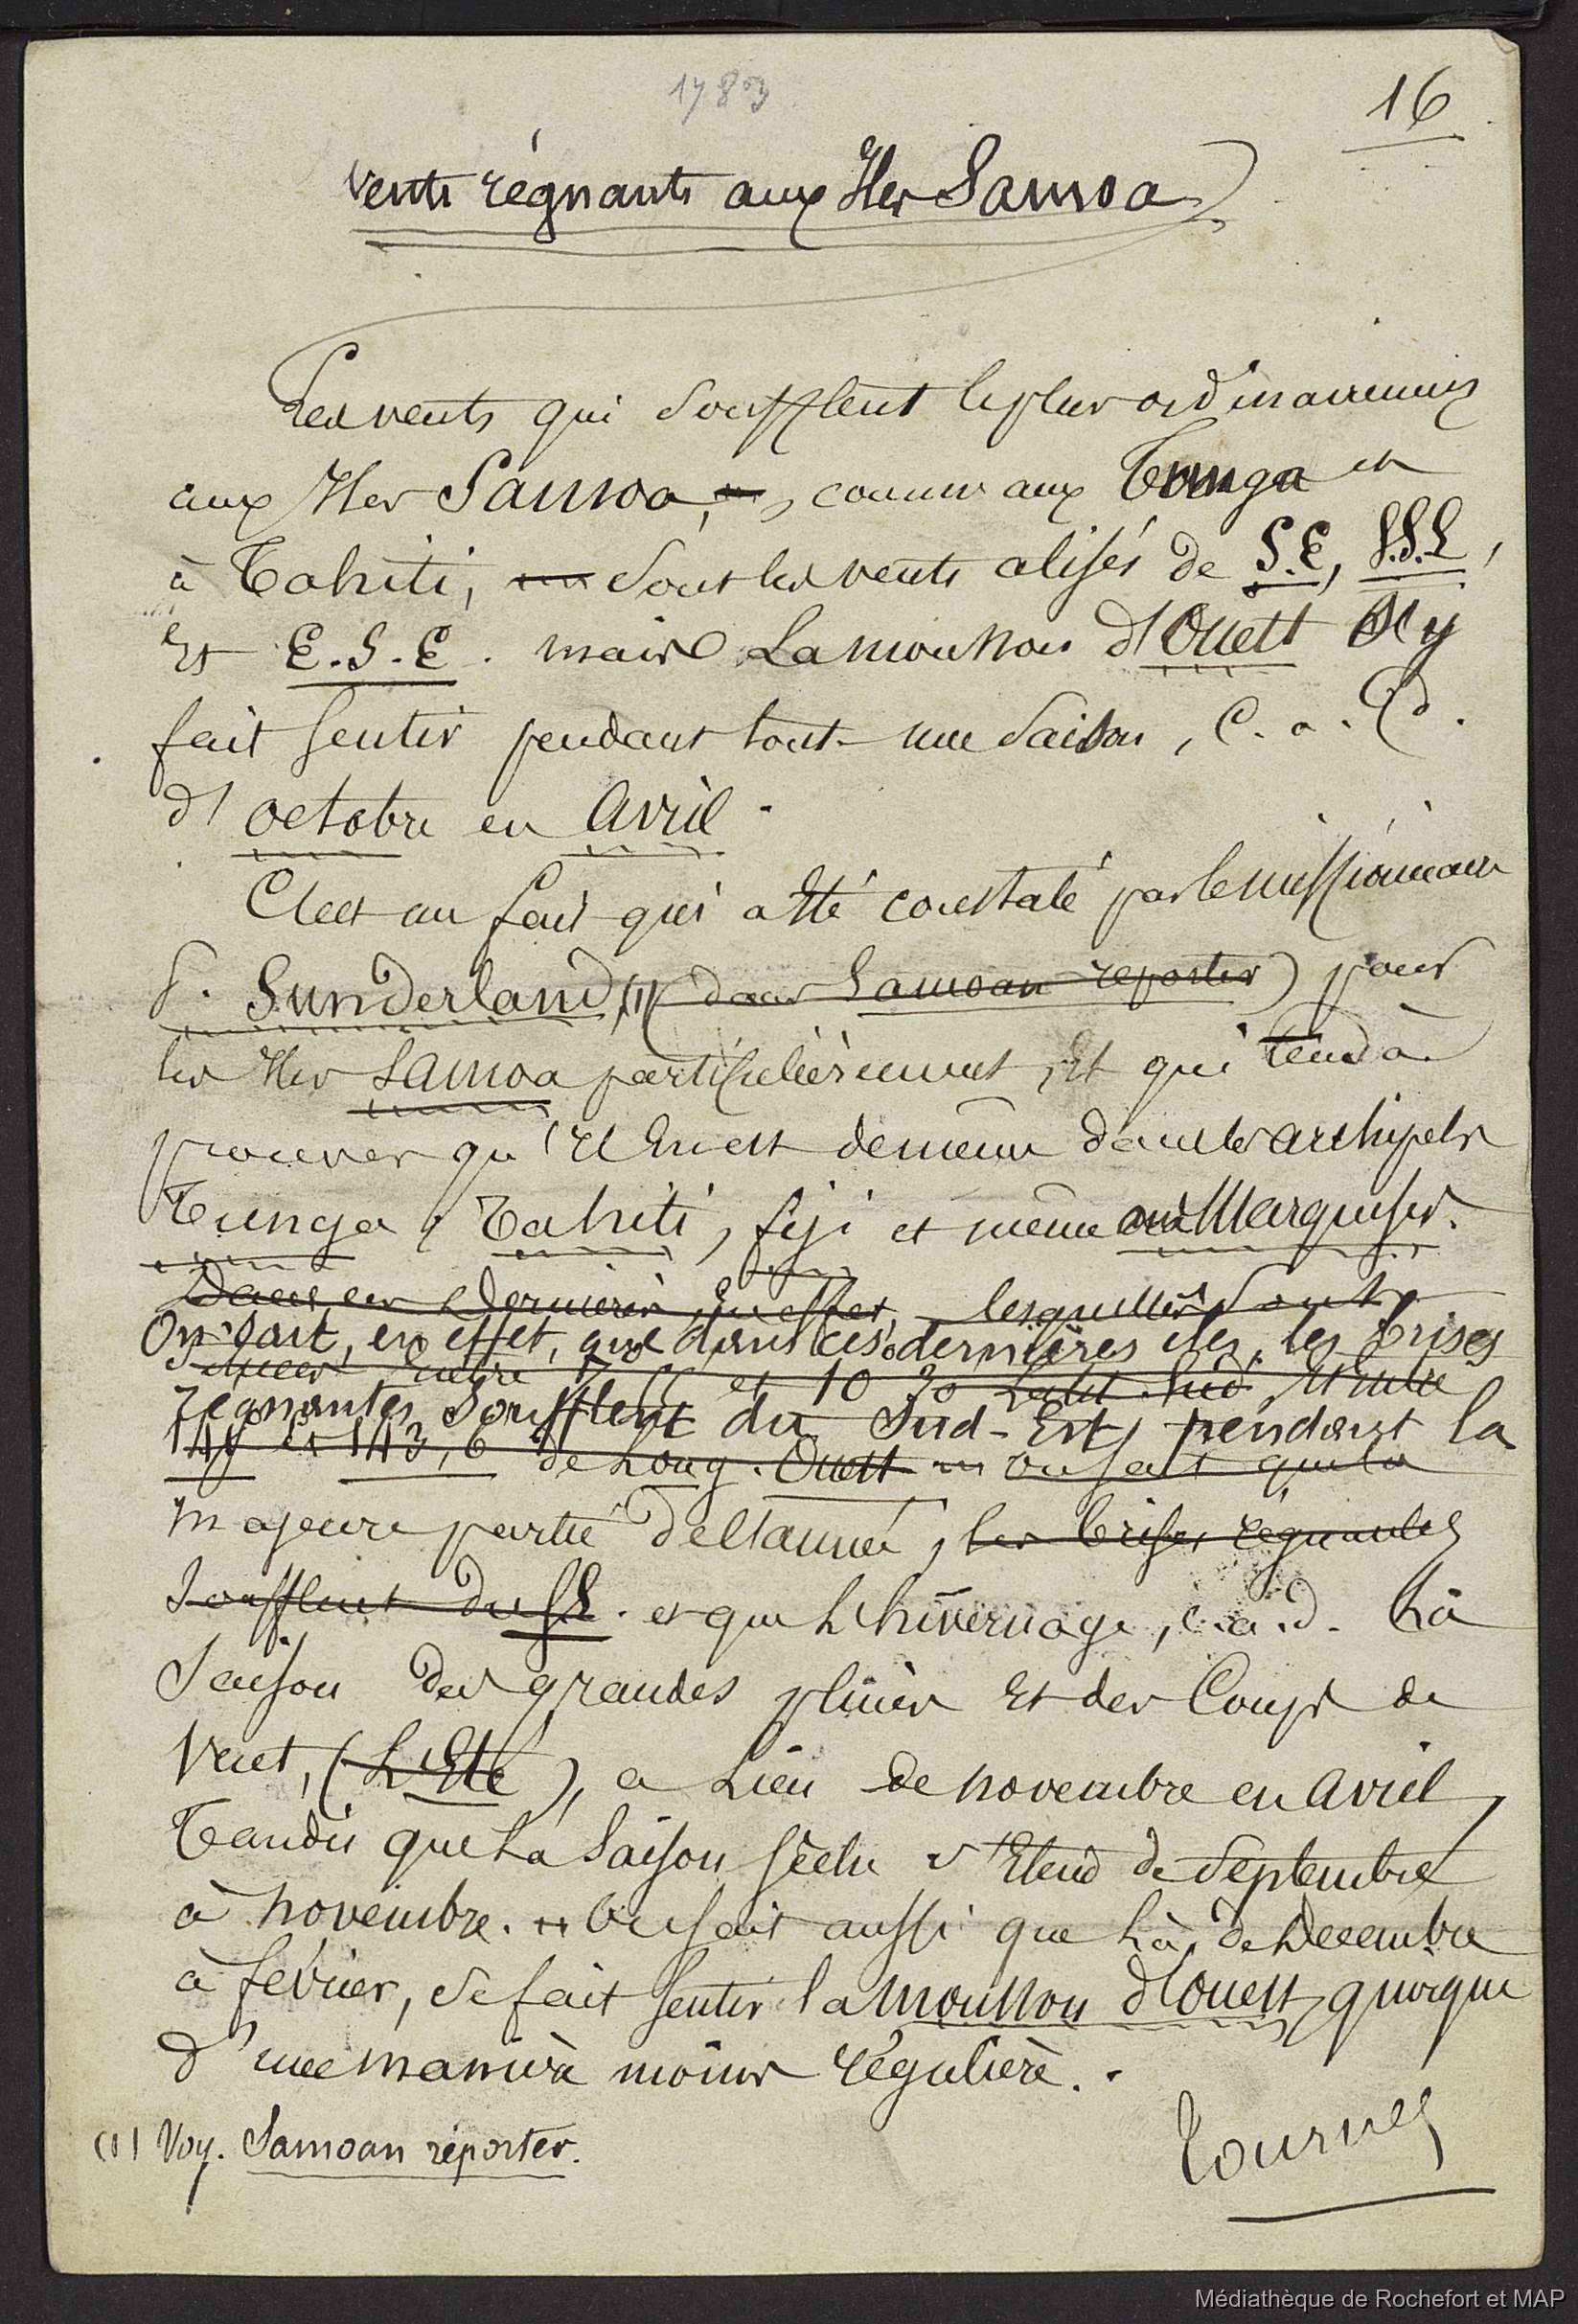 1783
16
vents régnants aux Iles Samoa
Les vents qui soufflent le plus ordinairement
aux Iles Samoa, comme aux Tounga et
à Tahiti, sont les vents alisés de S.E, S.S.E,
Et E.S.E. mais La mousson d'Ouest s'y
fait sentir pendant tout une saison, C.a.d.
d'octobre en avril.
C'est un fait qui a été constaté par le missionnaire
S. Sunderland (1) (dans Samoan reporter) pour
les Iles Samoa particulièrement, Et qui tend à
prouver qu'il En est de même dans les archipels
Tunga, Tahiti, fiji et même aux Marquises.
Dans ces dernières, En effet, lesquelles sont
On sait, en effet, que dans ces dernières iles, les brises
situées entre 7 55 et 10 30 Latit. Sud, Et entre
régnantes soufflent du Sud-Est, pendant la
141 et 143, 6 de Long. Ouest on sait que la
majeure partie de l'année, les brises régnantes
soufflent du S.E. et que L'hivernage, c.a.d. La
Saison des grandes pluies Et des Coups de
Vent, (L'Eté), a Lieu de novembre en avril,
Tandis que La Saison sèche s'Etend de Septembre
à novembre. On sait aussi que Là, de Decembre
à février, se fait sentir la mousson d'Ouest, quoique
d'une manière moins régulière.
(1) Voy. Samoan réporter.
Tournez
Médiathèque de Rochefort et MAP